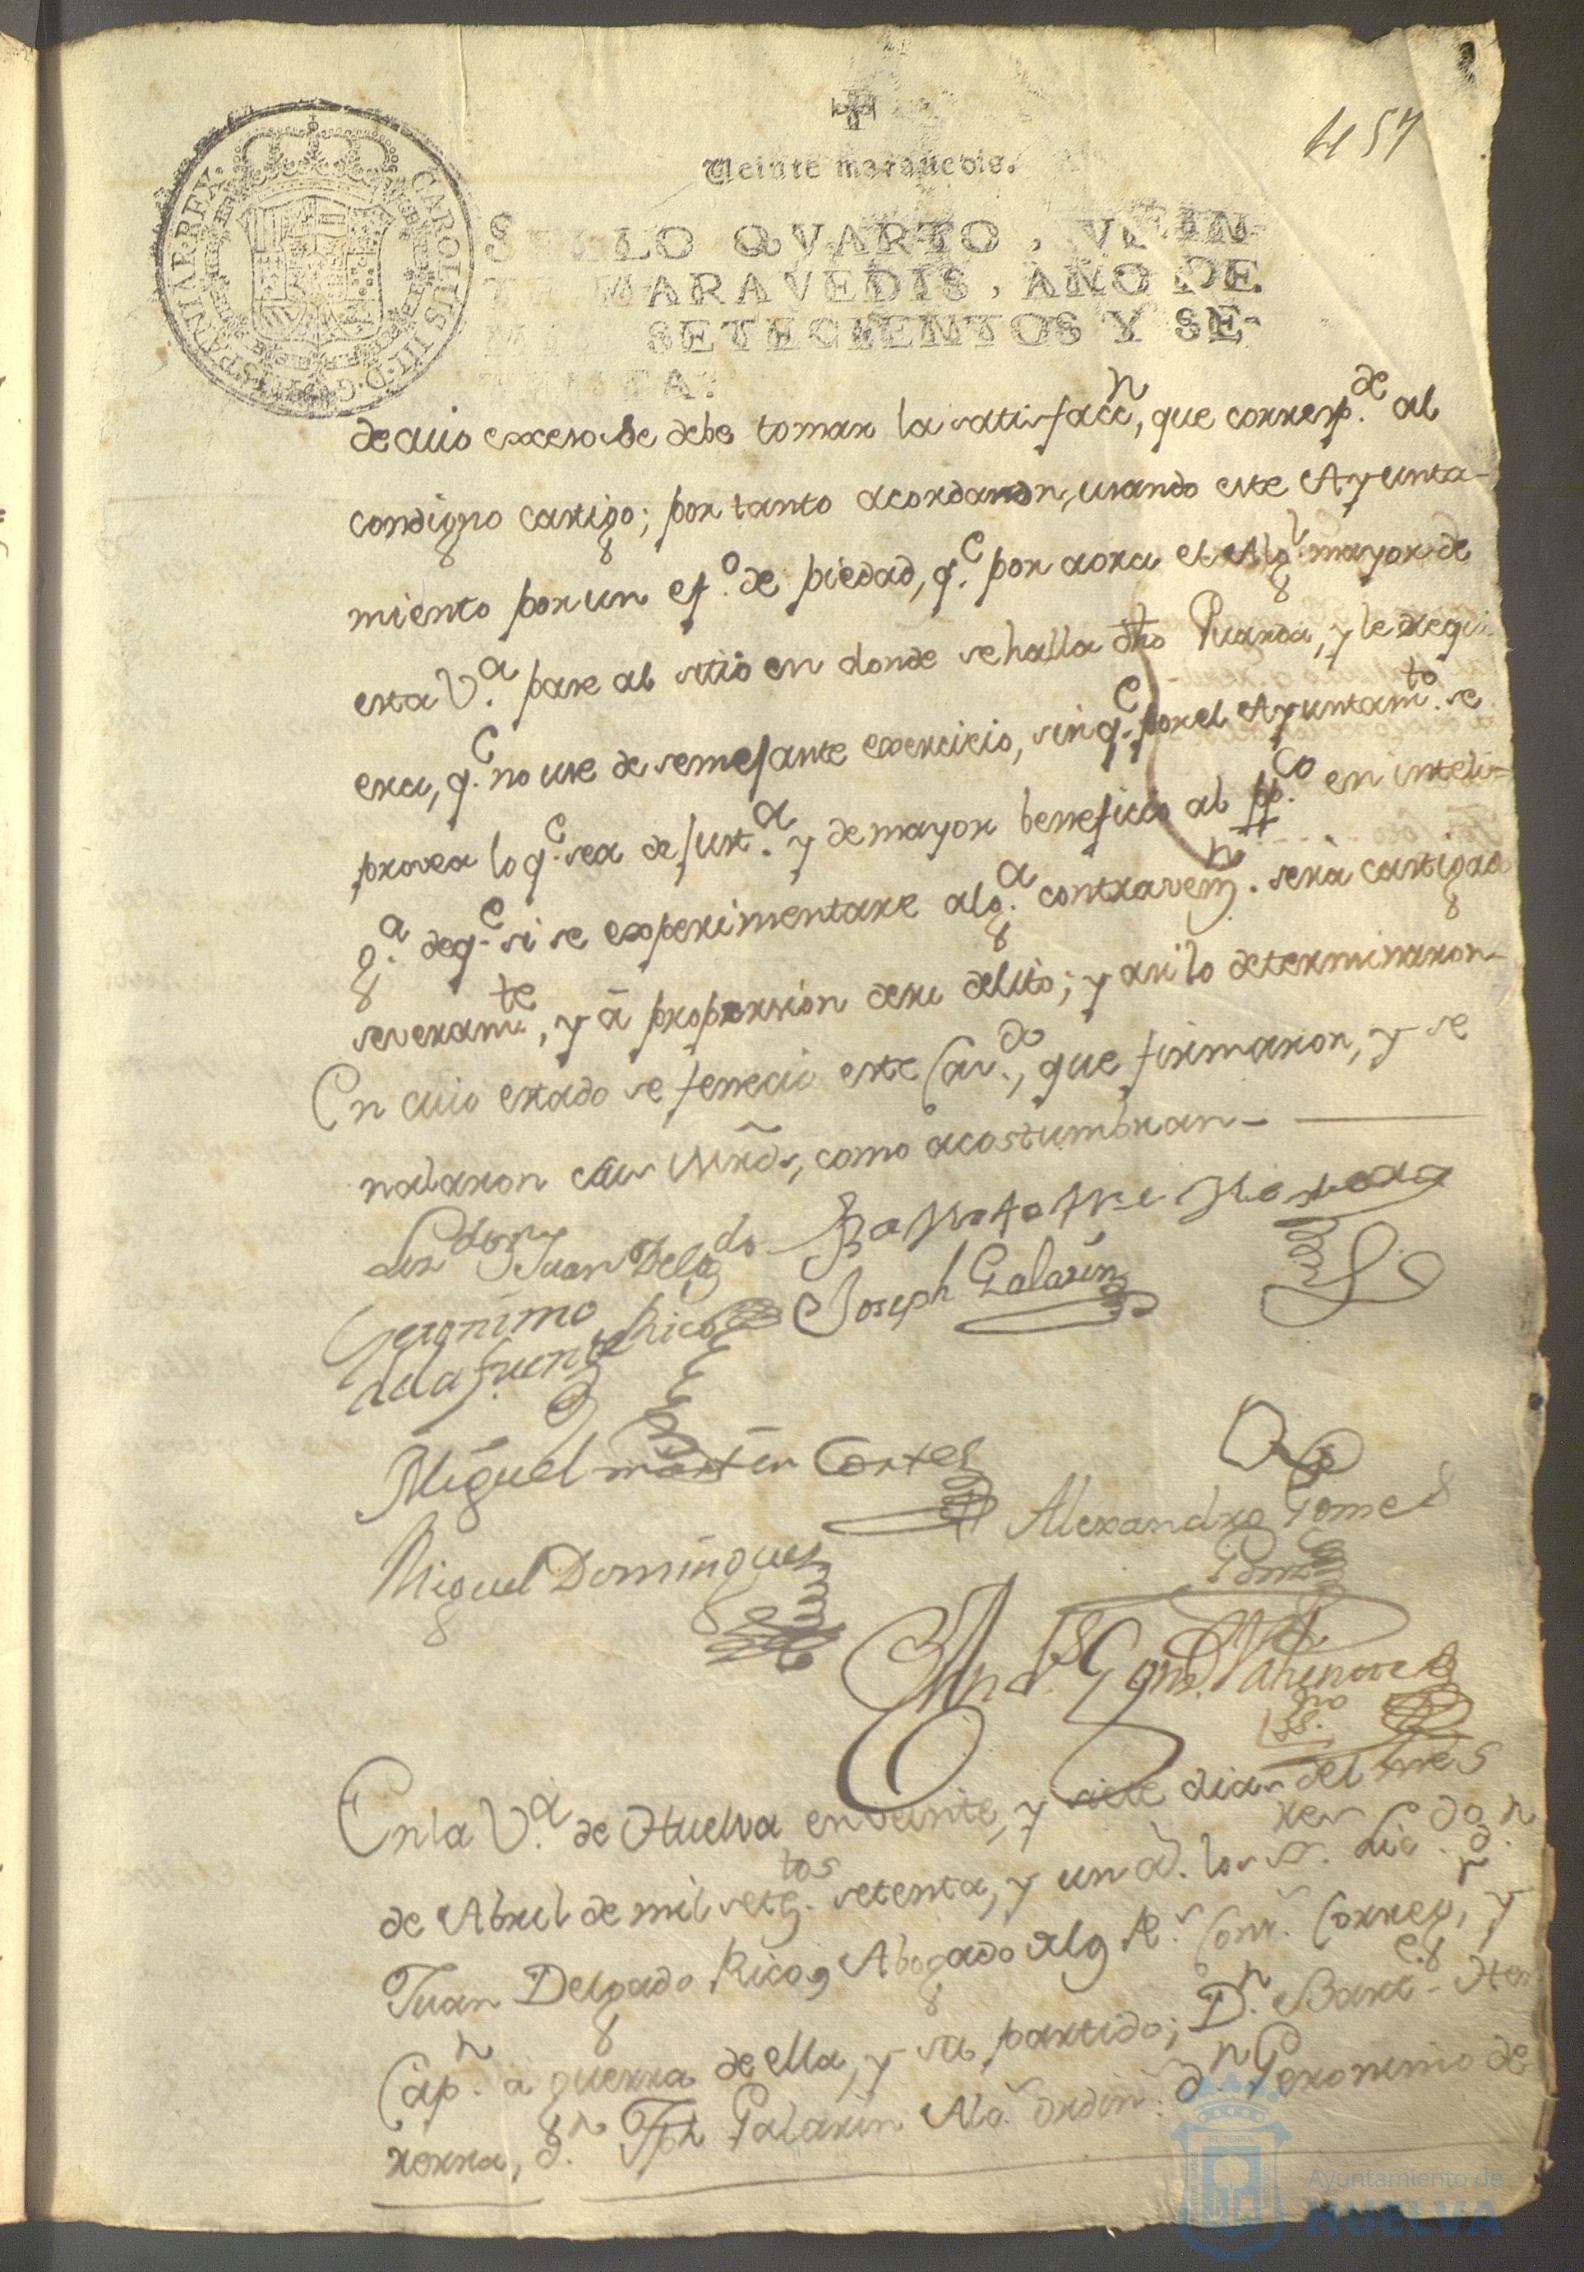 57
Veinte maravedis.
SELLO QVARTO, VEIN-
TE MARAVEDIS, AÑO DE
MIL SETECIENTOS Y SE-
TENTA.
CAROLUS III D.G. HISPANIAR. REX.
de cuio exceso se debe tomar la satisfaccn, que corresp.de al
condigno castigo; por tanto acordaron, usando este Ayunta-
miento por un ef.o de piedad, q.e por aora el Alg.l mayor de
esta V.a pase al sitio en donde se halla dho Guarda, y le requi
era, q.e no use de semejante exercicio, sin q.e por el Ayuntam.to se
provea lo q.e sea de just.a y de mayor beneficio al pp.co en inteli-
g.a de q.e si se experimentare alg.a contravenn. serà castigado
severamte, y à proporsion de su delito; y asi lo determinaron-
En cuio estado se fenecio este Cav.do, que firmaron, y se
ñalaron sus Mrds, como acostumbran-
Lizdo Dn Juan Delgdo
Rico
Joseph Galarin
Geronimo
de la fuente
Miguel martin Cortes
Alexandro Gomes
Miguel Domingues
En la V.a de Huelva en veinte, y siete dias del mes
de Abril de mil seteg.tos setenta, y un a. los ss.res Lic.do D.n
Juan Delgado Rico, Abogado Rs Cons. Correg.r, y
Cap.n à guerra de ella, y su partido; D.n Bart.e Her
rera, D.n Jph Galarin Alc. ordin. D.n Geronimo de
Ayuntamiento de
HUELVA